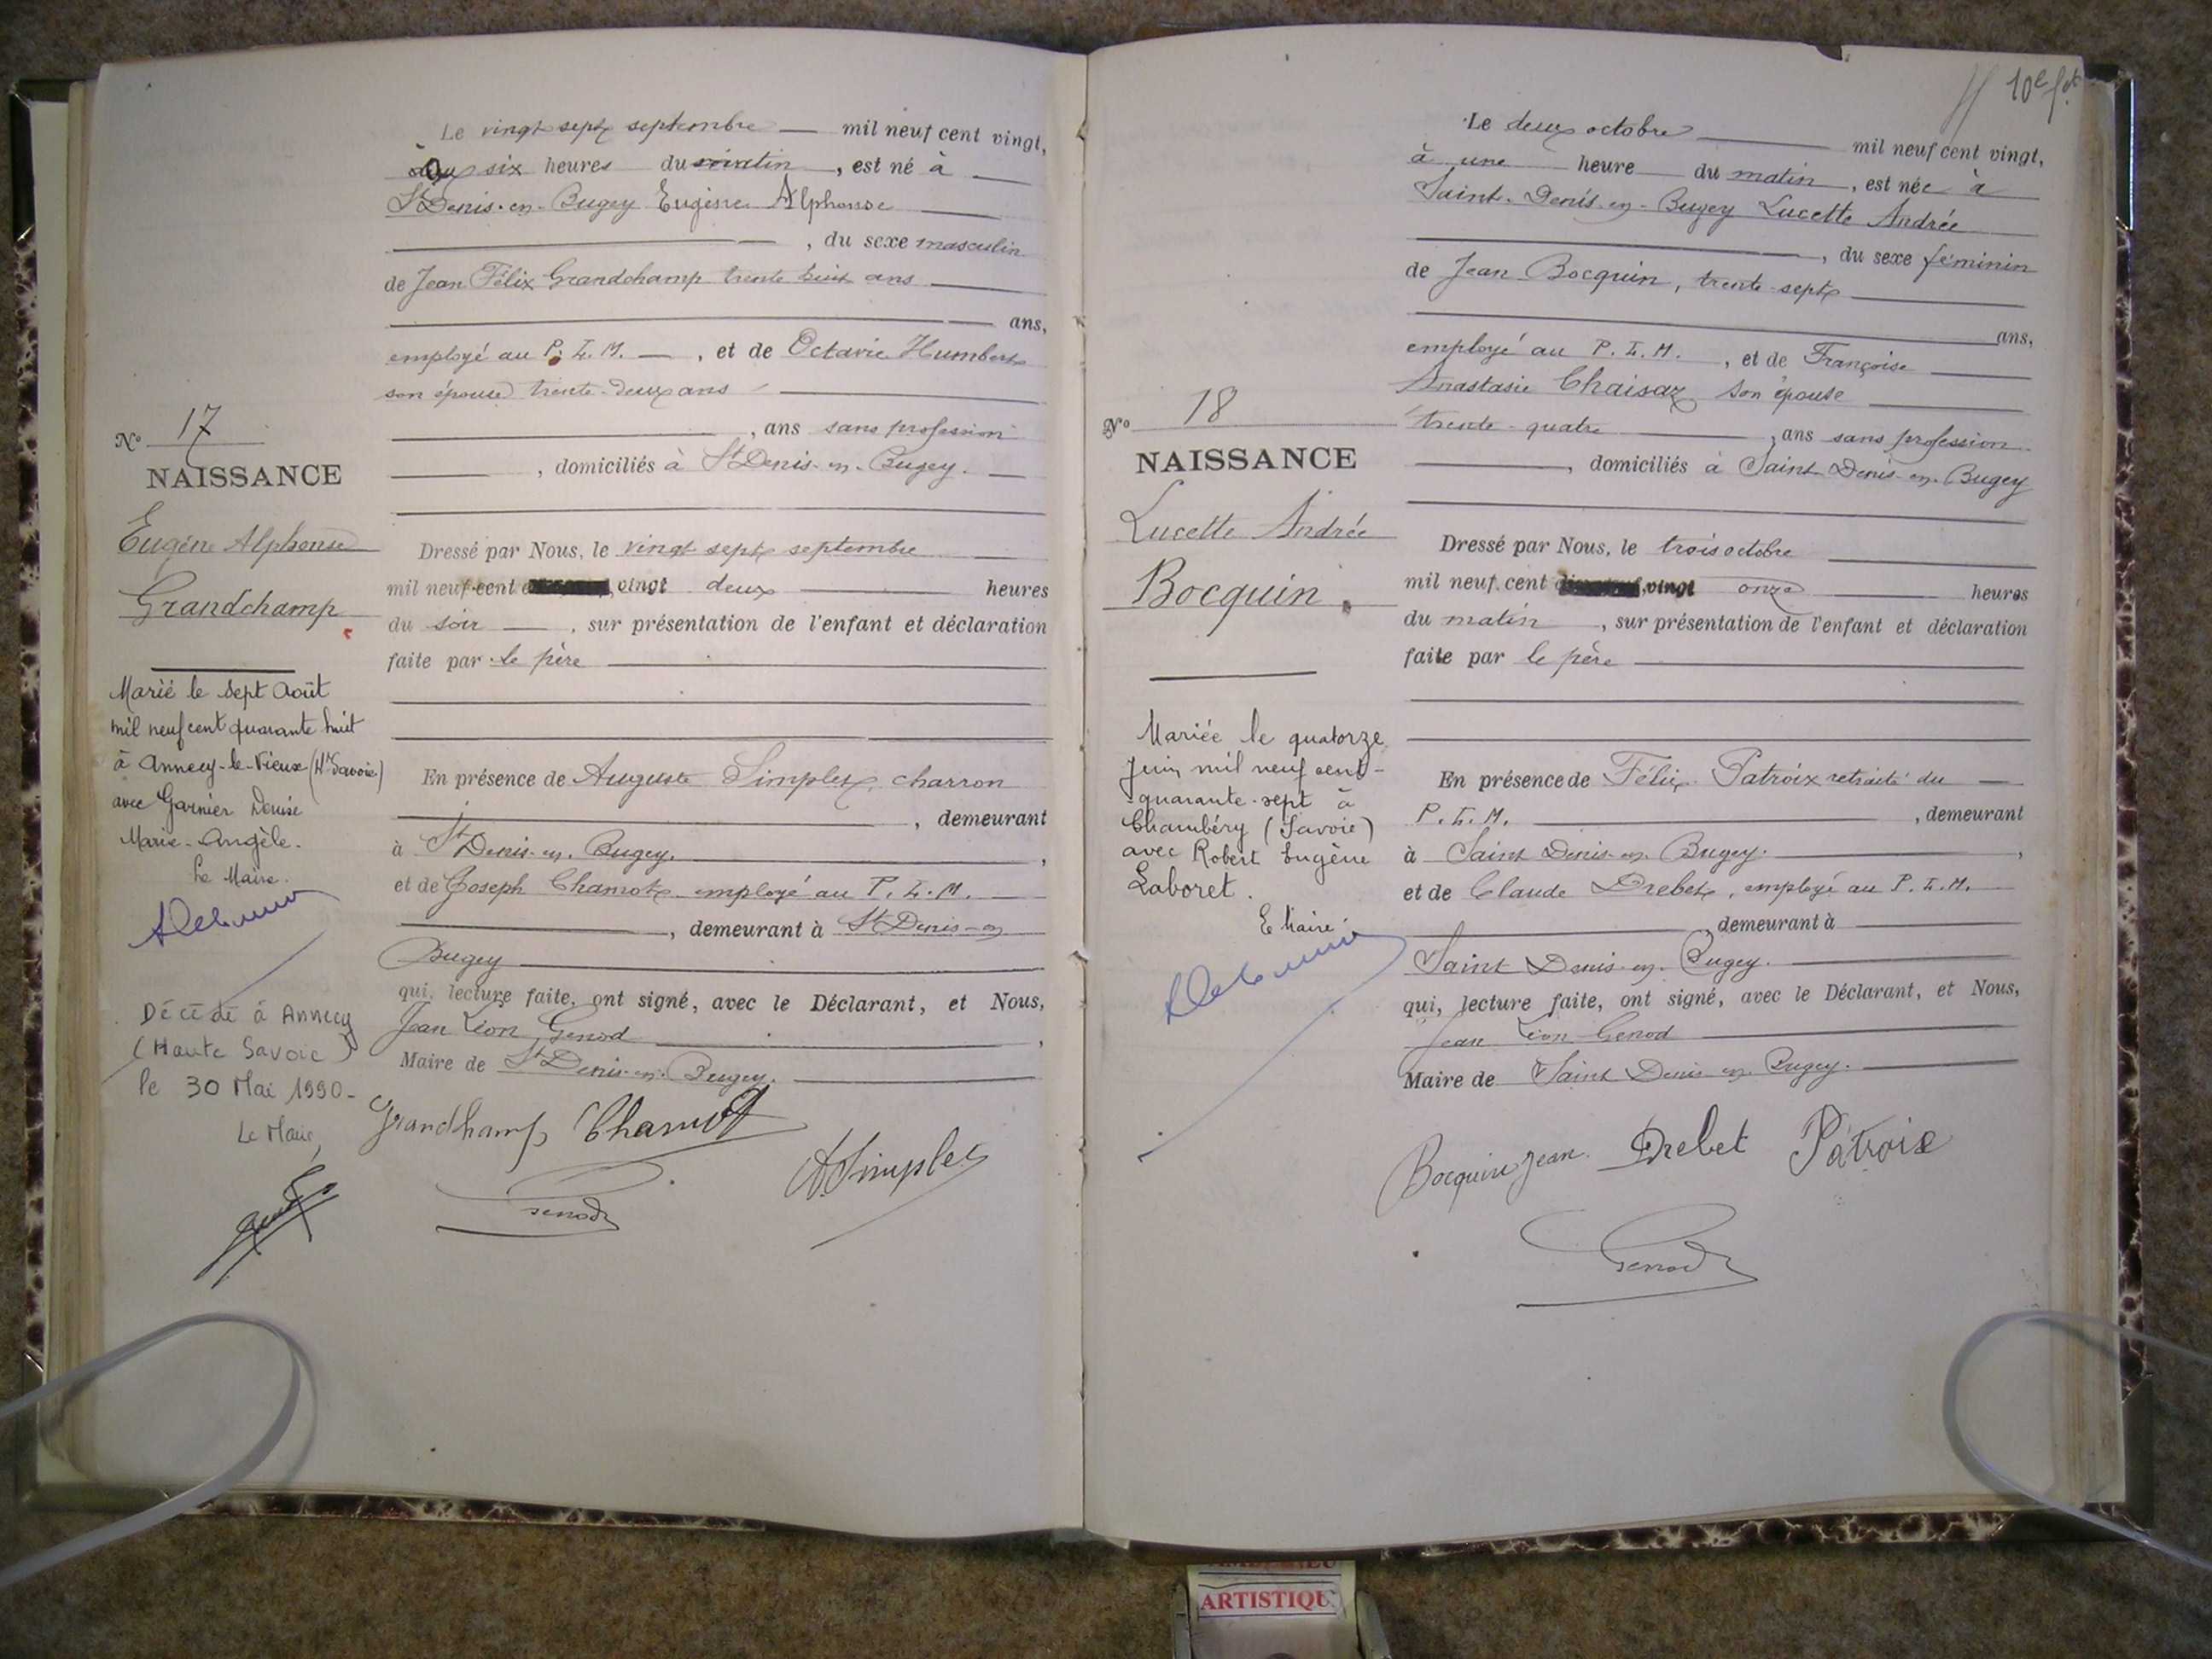 Le vingt sept septembre mil neuf cent vingt,
à six heures du matin, est né à
St Denis-en-Bugey Eugène Alphonse
, du sexe masculin
de Jean Félix Grandchamp trente huit ans
ans,
employé au P. L. M. , et de Octavie Humbert
son épouse trente-deux ans
, ans sans profession
, domiciliés à St Denis-en-Bugey.
Dressé par Nous, le vingt sept septembre
mil neuf cent vingt deux heures
du soir , sur présentation de l'enfant et déclaration
faite par le père
En présence de Auguste Simplex charron
, demeurant
à St Denis-en-Bugey. ,
et de Joseph Chamot employé au P. L. M.
, demeurant à St Denis-en
Bugey
qui, lecture faite, ont signé, avec le Déclarant, et Nous,
Jean Léon Genod ,
Maire de St Denis-en-Bugey.
Grandchamp Chamot
A. Simplex
Genod
No 17
NAISSANCE
Eugène Alphonse
Grandchamp
Marié le sept Août
mil neuf cent quarante huit
à Annecy-le-Vieux (Hte Savoie)
avec Garnier Denise
Marie-Angèle.
Le Maire.
Décédé à Annecy
(Haute Savoie)
le 30 Mai 1990-
Le Maire,
10e f.et
Le deux octobre mil neuf cent vingt,
à une heure du matin, est née à
Saint-Denis-en-Bugey Lucette Andrée
, du sexe féminin
de Jean Bocquin, trente-sept
ans,
employé au P. L. M. , et de Françoise
Anastasie Chaisaz son épouse
trente-quatre , ans sans profession
, domiciliés à Saint Denis-en-Bugey
Dressé par Nous, le trois octobre
mil neuf cent vingt onze heures
du matin , sur présentation de l'enfant et déclaration
faite par le père
En présence de Félix Patroix retraité du
P. L. M. , demeurant
à Saint Denis-en-Bugey. ,
et de Claude Drebet, employé au P. L. M.
, demeurant à
Saint Denis-en-Bugey.
qui, lecture faite, ont signé, avec le Déclarant, et Nous,
Jean Léon Genod
Maire de Saint Denis en Bugey.
Bocquin Jean. Drebet Patroix
Genod
No 18
NAISSANCE
Lucette Andrée
Bocquin.
Mariée le quatorze
Juin mil neuf cent-
quarante-sept à
Chambéry (Savoie)
avec Robert Eugène
Laboret.
Le Maire.
ARTISTIQU